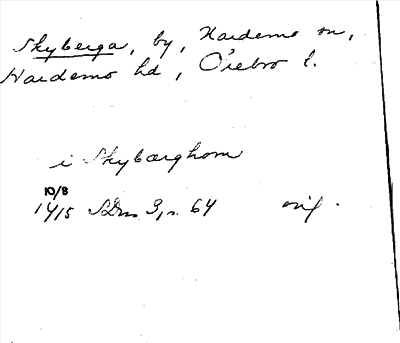 Skyberga, by, Hardemo sn,
Hardemo hd, Örebro l.
i Skybærghom
10/8
1415 SDns 3, s. 64 orig.